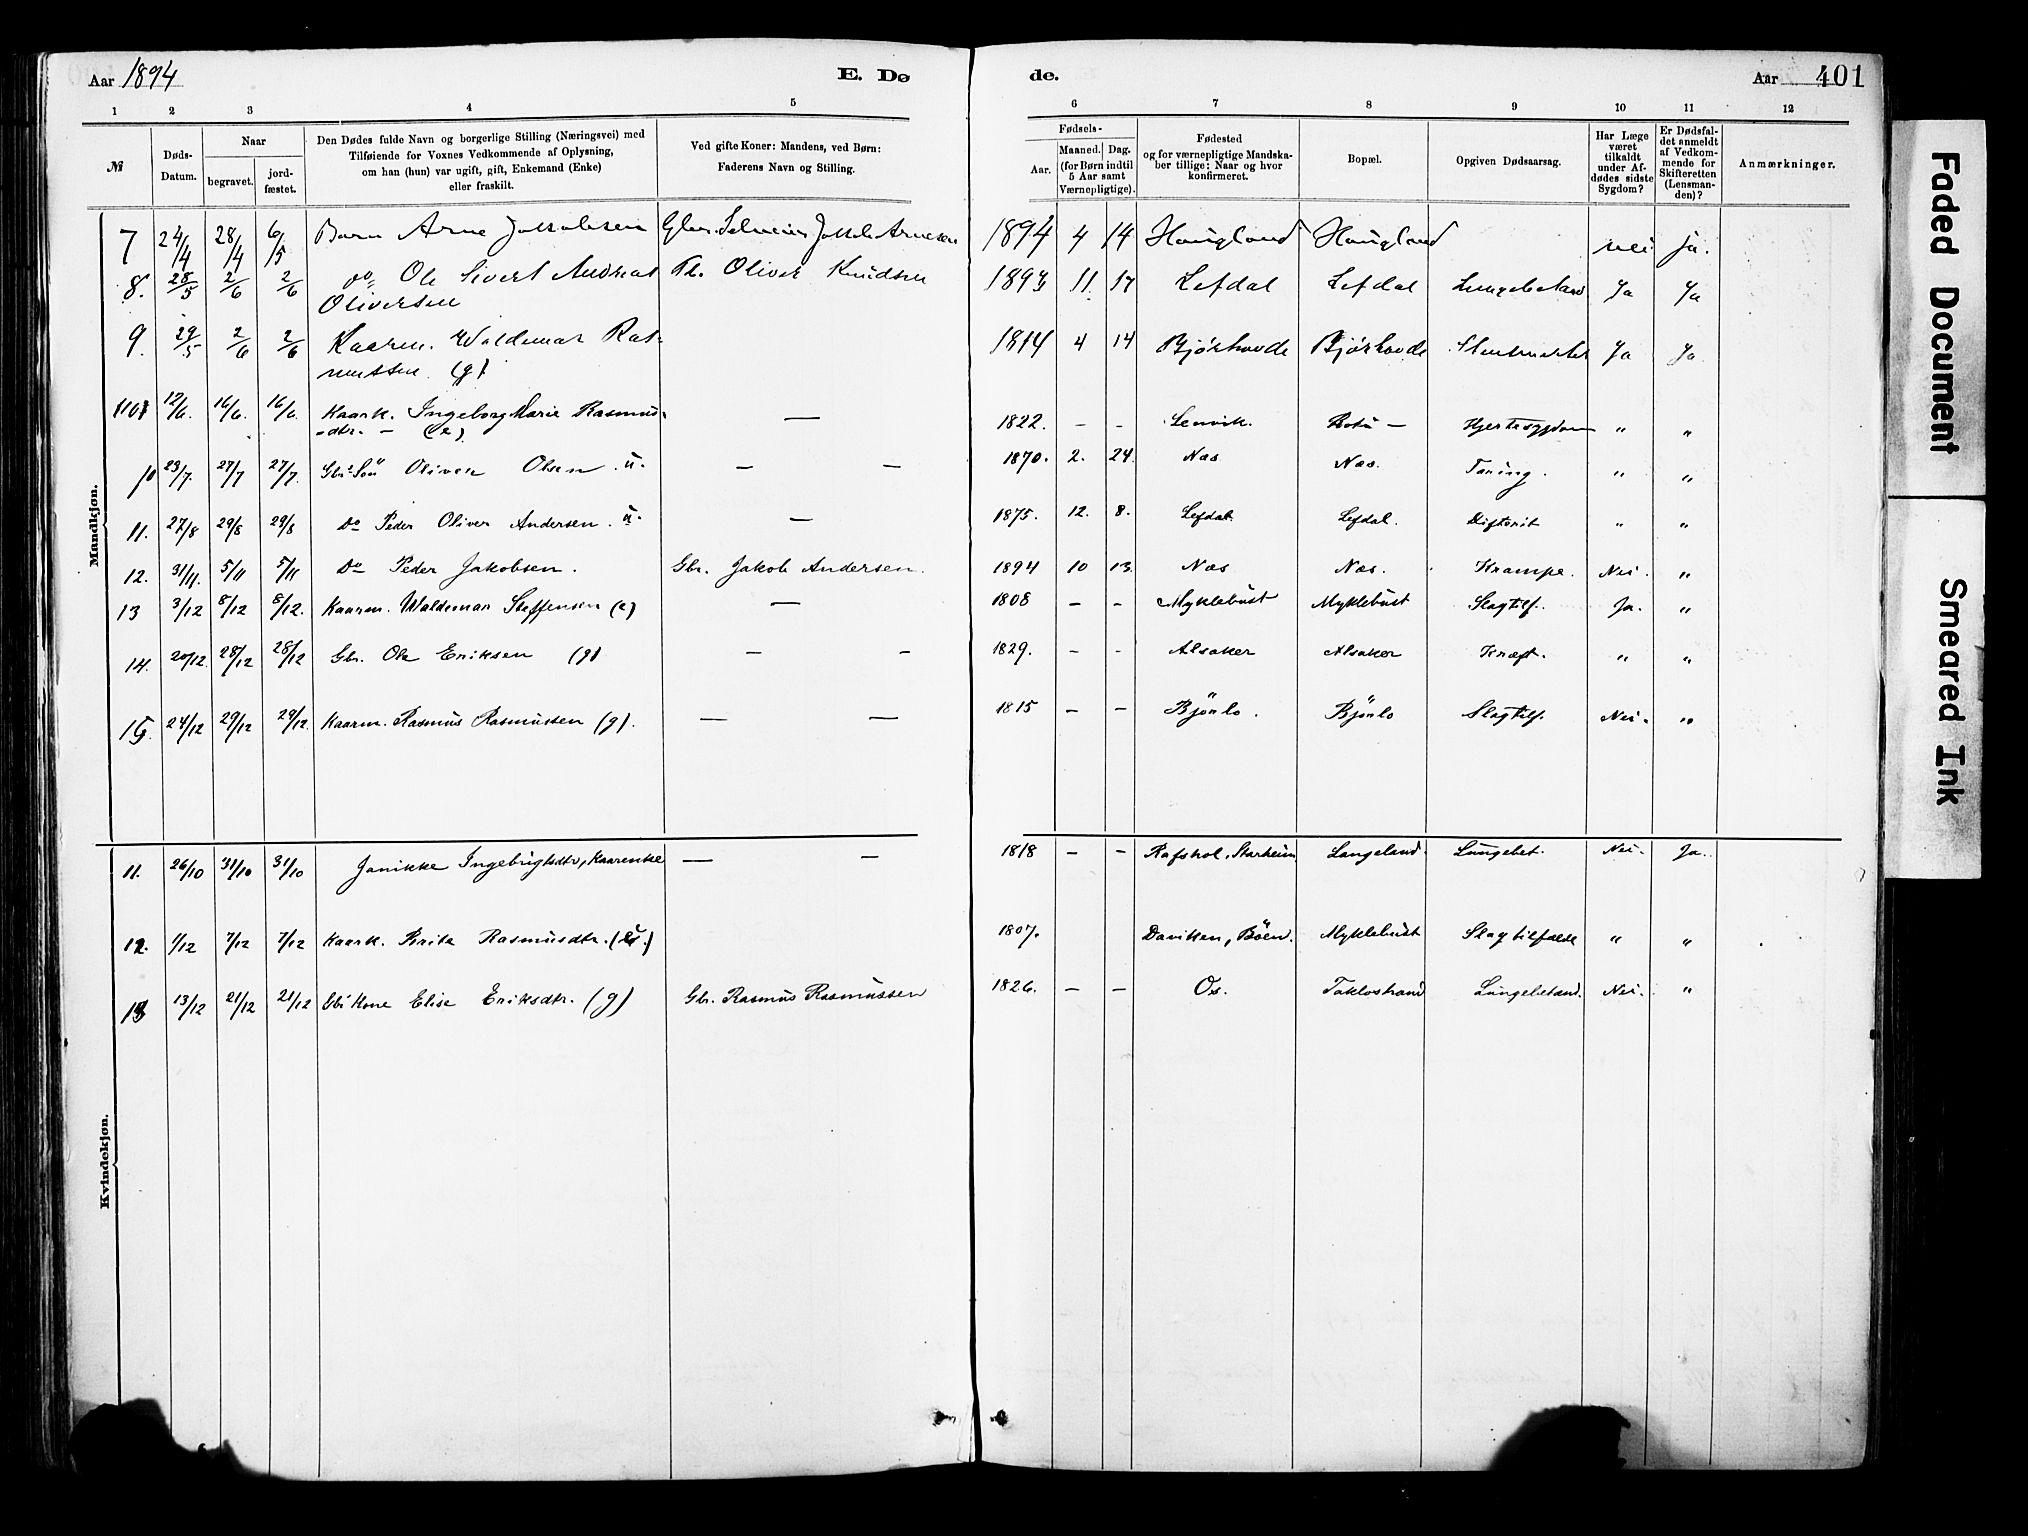 Aar 1894
E. Dø
de.
Aar 401
1 2 3 4 5 6 7 8 9 10 11 12
№
Døds-
Datum.
Naar
begravet.
jord-
fæstet.
Den Dødes fulde Navn og borgerlige Stilling (Næringsvei) med
Tilføiende for Voxnes Vedkommende af Oplysning,
om han (hun) var ugift, gift, Enkemand (Enke)
eller fraskilt.
Ved gifte Koner: Mandens, ved Børn:
Faderens Navn og Stilling.
Fødsels-
Aar.
Maaned. Dag.
(for Børn indtil
5 Aar samt
Værnepligtige).
Fødested
og for værnepligtige Mandska-
ber tillige: Naar og hvor
konfirmeret.
Bopæl.
Opgiven Dødsaarsag.
Har Læge
været
tilkaldt
under Af-
dødes sidste
Sygdom?
Er Dødsfal-
det anmeldt
af Vedkom-
mende for
Skifteretten
(Lensman-
den)?
Anmærkninger.
Mandkjøn.
7 24/4 28/4 6/5 Barn Arne Jakobsen Jakob Arnesen 1894 4 14 Haugland Haugland nei ja.
8. 28/5 2/6 2/6 do Ole Sivert Andreas Oliver Knudsen 11. 17 Lefdal Lefdal Ja Ja
Oliversen
9. 29/5 2/6 2/6 Kaarm. Waldemar Ras- 1814 4 14 Bjørhovde Bjørhovde Ja Ja
mussen (g)
12/6. 16/6. 16/6. Kaark. Ingeborg Marie Rasmus- — 1822. - - Lenvik. Hjertesygdom " "
dtr. - (e)
10 23/7. 27/7 27/7. Gbr. Søn Oliver Olsen. u. — — 1870. 2. 24. Næs Næs. Tæring. " "
11. 27/8 29/8 29/8 Do Peder Oliver Andersen. u. — 1875. 12. 8. Lefdal Lefdal. Difterit " "
12. 31/11. 5/11 5/11 Do Peder Jakobsen. Gbr. Jakob Andersen. 1894 10 13. Næs Næs. Krampe. Nei. "
13 3/12 8/12 8/12. Kaarm. Waldemar Steffensen (e) — 1808 - - Myklebust Myklebust Slagtilf. Ja. "
14. 20/12. 28/12 28/12 Gbr. Ole Eriksen (g) — - 1829. - - Alsaker Alsaker Kræft. " "
15. 24/12 29/12 29/12. Kaarm. Rasmus Rasmussen (g). — — 1815 - - Bjørlo. Bjørlo Slagtilf. Nei. "
Kvindekjøn.
11. 26/10 31/10 31/10 Janikke Ingebrigtsdtr, Kaarenke — — 1818 - - Rafstol, Starheim Langeland. Lungebet. Nei. Ja.
12. 1/12 7/12 7/12 Kaark. Brite Rasmusdtr. 1807. Daviken, Böen. Myklebust Slagtilfælde " "
13 13/12 21/12 21/12 Gbr Kone Elise Eriksdtr. (g) Gbr. Rasmus Rasmussen 1826. — — Os. Taklostrand Lungebetænd. Nei. "
Faded Document
Smeared Ink